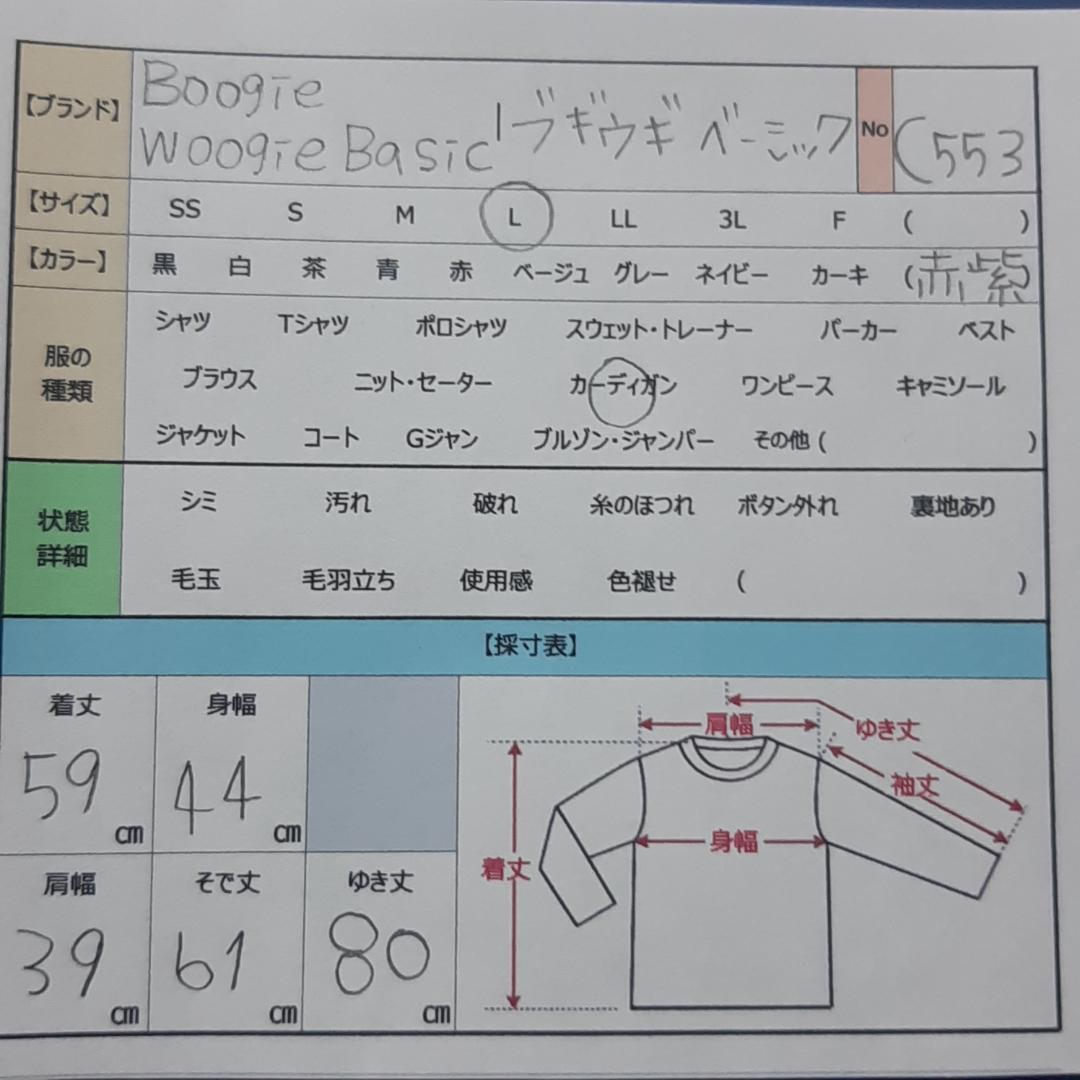 【ブランド】 Boogie
Woogie Basic ブギウギ ベーシック No C553
【サイズ】 SS S M L LL 3L F ( )
【カラー】 黒 白 茶 青 赤 ベージュ グレー ネイビー カーキ (赤紫
服の
種類
シャツ Tシャツ ポロシャツ スウェット・トレーナー パーカー ベスト
ブラウス ニット・セーター カーディガン ワンピース キャミソール
ジャケット コート Gジャン ブルゾン・ジャンパー その他 ( )
状態
詳細
シミ 汚れ 破れ 糸のほつれ ボタン外れ 裏地あり
毛玉 毛羽立ち 使用感 色褪せ ( )
【採寸表】
着丈 身幅
59 cm 44 cm
肩幅 そで丈 ゆき丈
39 cm 61 cm 80 cm
肩幅 ゆき丈
袖丈
身幅
着丈